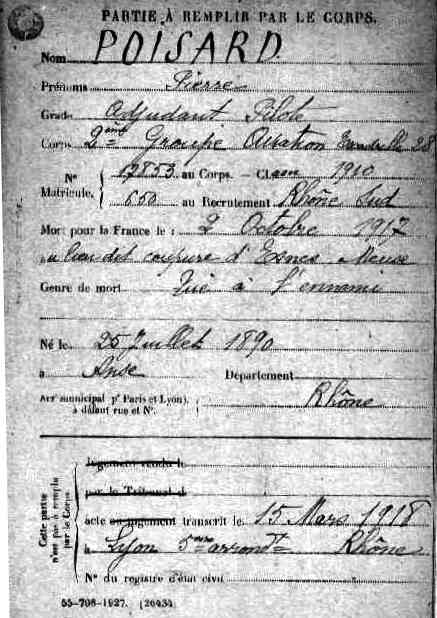 PARTIE À REMPLIR PAR LE CORPS.
Nom POISARD
Prénoms Pierre
Grade Adjudant Pilote
Corps 2ème Groupe Aviation Escadrille 28
N° Matricule. 17853 au Corps. — Classe 1910
650 au Recrutement Rhône Sud
Mort pour la France le : 2 Octobre 1917
au lieu dit coupure d'Esnes Meuse
Genre de mort Tué à l'ennemi
Né le 25 Juillet 1890
à Anse Département
Arr¹ municipal (p¹ Paris et Lyon), à défaut rue et N°. Rhône
Cette partie n'est pas à remplir par le Corps.
jugement rendu le
par le Tribunal d
acte ou jugement transcrit le 15 Mars 1918
à Lyon 5ème arrondt Rhône
N° du registre d'état civil
55-708-1927. [26434.